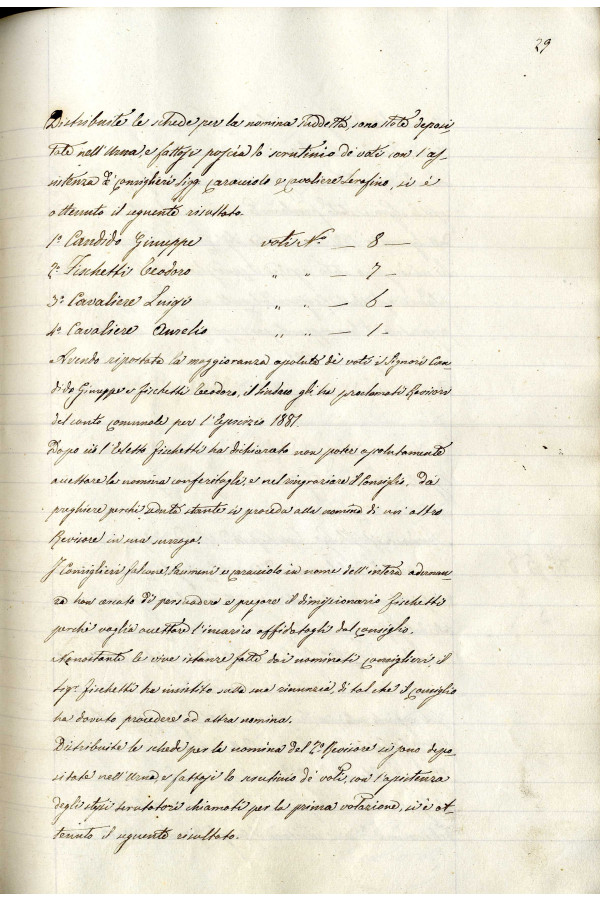 29
Distribuite le schede per la nomina suddetta, sono state deposi
tate nell'Urna, e fattosi poscia lo scrutinio de' voti con l'as-
sistenza de' Consiglieri Sigg. Caracciolo e Cavaliere Serafino, si è
ottenuto il seguente risultato.
1° Candido Giuseppe voti N.° — 8 —
2° Fischetti Teodoro " " — 7 —
3° Cavaliere Luigi " " — 6 —
4° Cavaliere Aurelio " " — 1 —
Avendo riportata la maggioranza assoluta di voti i Signori Can-
dido Giuseppe e Fischetti Teodoro, il Sindaco gli ha proclamati Revisori
del conto comunale per l'Esercizio 1881.
Dopo ciò l'Eletto Fischetti ha dichiarato non poter assolutamente
accettare la nomina conferitagli, e nel ringraziare il Consiglio, dà
preghiere perchè seduta stante si proceda alla nomina di un'altro
Revisore in sua surroga.
I Consiglieri Falcone, e Caracciolo in nome dell'intera adunan-
za han cercato di persuadere e pregare il dimissionario Fischetti
perchè voglia accettare l'incarico affidatogli dal Consiglio.
Nonostante le vive istanze fatte dai nominati Consiglieri, il
Sig.r Fischetti ha insistito sulla sua rinunzia, di tal che il Consiglio
ha dovuto procedere ad altra nomina.
Distribuite le schede per la nomina del 2° Revisore si sono depo-
sitate nell'Urna, e fattosi lo scrutinio de' voti, con l'assistenza
degli stessi scrutatori chiamati per la prima votazione, si è ot-
tenuto il seguente risultato.